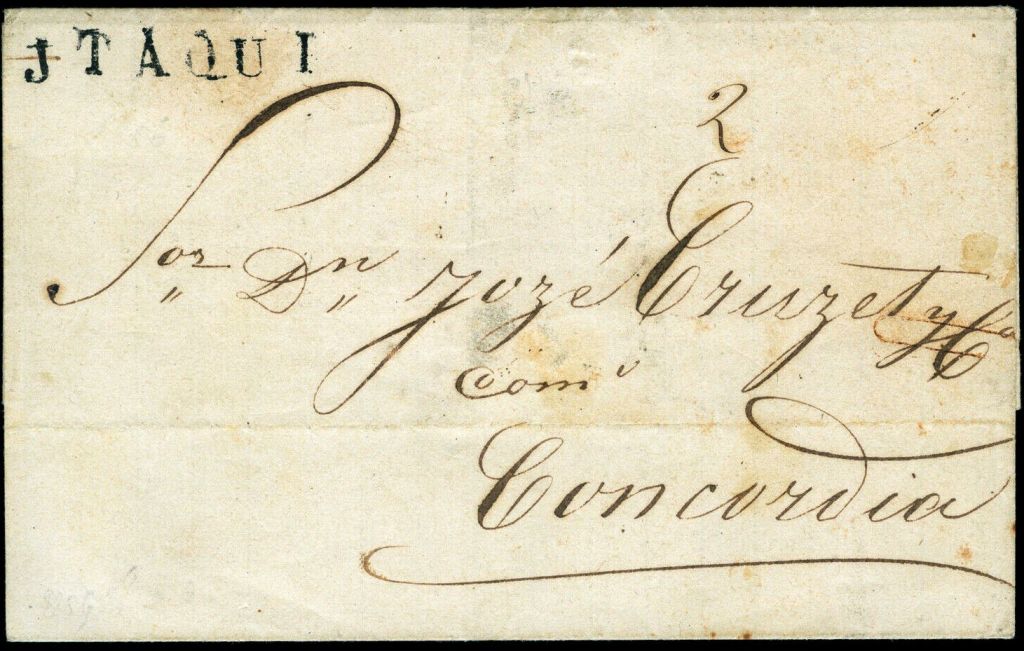 JTAQUI
2
Sor Dn Jozé Cruzet y Ca
Concordia